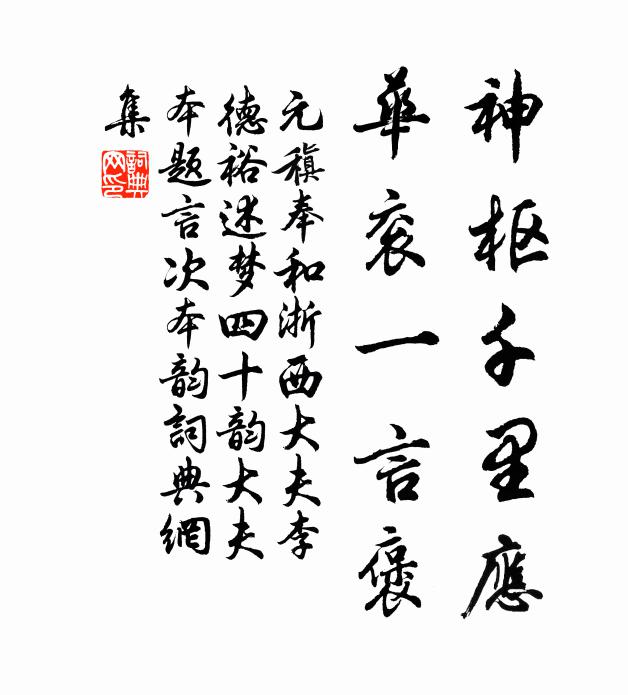 神枢千里應
華衮一言褒
元稹奉和浙西大夫李
德裕述梦四十韵大夫
本题言次本韵詞典網
集
詞典网印